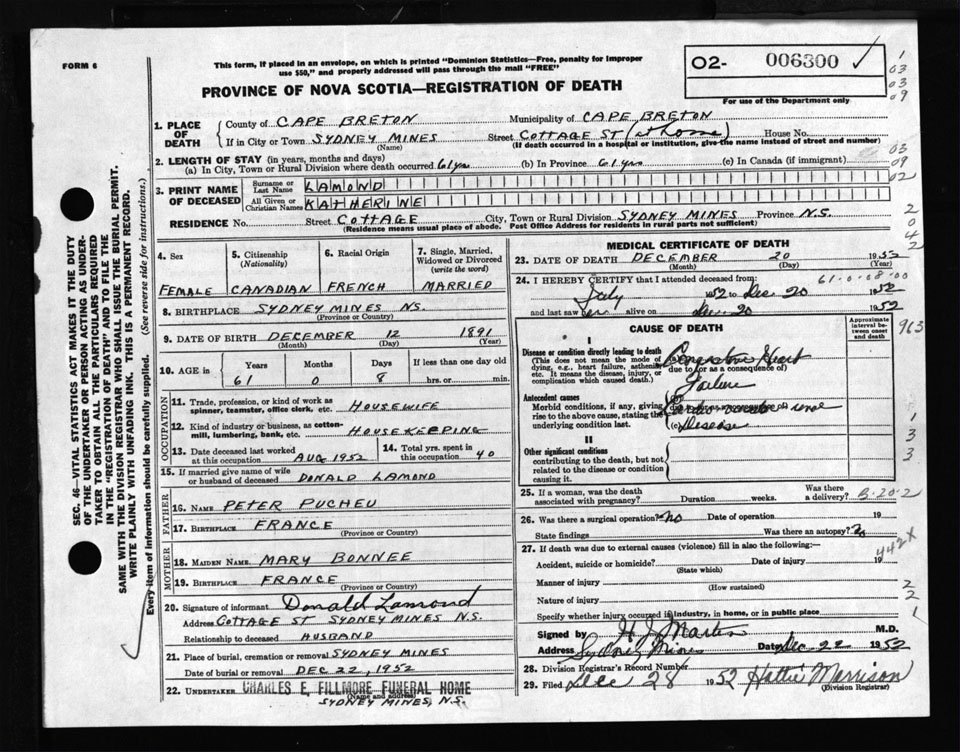 FORM 6
This form, if placed in an envelope, on which is printed "Dominion Statistics—Free, penalty for improper
use $50," and properly addressed will pass through the mail "FREE"
PROVINCE OF NOVA SCOTIA—REGISTRATION OF DEATH
02- 006300
For use of the Department only
1. PLACE OF DEATH
County of CAPE BRETON Municipality of CAPE BRETON
If in City or Town SYDNEY MINES Street COTTAGE ST (at home) House No.
(Name) (If death occurred in a hospital or institution, give the name instead of street and number)
2. LENGTH OF STAY (in years, months and days)
(a) In City, Town or Rural Division where death occurred 61 yrs (b) In Province 61 yrs (c) In Canada (if immigrant)
3. PRINT NAME OF DECEASED
Surname or Last Name LAMOND
All Given or Christian Names KATHERINE
RESIDENCE No. Street COTTAGE City, Town or Rural Division SYDNEY MINES Province N.S.
(Residence means usual place of abode. Post Office Address for residents in rural parts not sufficient)
4. Sex
FEMALE
5. Citizenship (Nationality)
CANADIAN
6. Racial Origin
FRENCH
7. Single, Married, Widowed or Divorced (write the word)
MARRIED
8. BIRTHPLACE SYDNEY MINES N.S.
(Province or Country)
9. DATE OF BIRTH DECEMBER 12 1891
(Month) (Day) (Year)
10. AGE in Years Months Days If less than one day old
61 0 8 hrs. or min.
OCCUPATION
11. Trade, profession, or kind of work as spinner, teamster, office clerk, etc. HOUSEWIFE
12. Kind of industry or business, as cotton-mill, lumbering, bank, etc. HOUSEKEEPING
13. Date deceased last worked at this occupation AUG 1952
14. Total yrs. spent in this occupation 40
15. If married give name of wife or husband of deceased DONALD LAMOND
FATHER
16. NAME PETER PUCHEU
17. BIRTHPLACE FRANCE
(Province or Country)
MOTHER
18. MAIDEN NAME MARY BONNEE
19. BIRTHPLACE FRANCE
(Province or Country)
20. Signature of informant Donald Lamond
Address COTTAGE ST SYDNEY MINES N.S.
Relationship to deceased HUSBAND
21. Place of burial, cremation or removal SYDNEY MINES
Date of burial or removal DEC 22, 1952
22. UNDERTAKER CHARLES E. FILLMORE FUNERAL HOME
(Name and address)
SYDNEY MINES, N.S.
MEDICAL CERTIFICATE OF DEATH
23. DATE OF DEATH DECEMBER 20 1952
(Month) (Day) (Year)
24. I HEREBY CERTIFY that I attended deceased from: 61-0-08-00
July 1952 to Dec. 20 1952
and last saw her alive on Dec. 20 1952
CAUSE OF DEATH
Approximate interval between onset and death
I
Disease or condition directly leading to death
(This does not mean the mode of dying, e.g., heart failure, asthenia, etc. It means the disease, injury, or complication which caused death.)
(a) Congestive Heart
due to (or as a consequence of)
Failure
Antecedent causes
Morbid conditions, if any, giving rise to the above cause, stating the underlying condition last.
(b)
(c) Disease
II
Other significant conditions
contributing to the death, but not related to the disease or condition causing it.
25. If a woman, was the death associated with pregnancy? Duration weeks. Was there a delivery? B-20-2
26. Was there a surgical operation? no Date of operation 19
State findings Was there an autopsy? No
27. If death was due to external causes (violence) fill in also the following:—
Accident, suicide or homicide? Date of injury 19
(State which)
Manner of injury
(How sustained)
Nature of injury
Specify whether injury occurred in industry, in home, or in public place
Signed by H J Martin M.D.
Address Sydney Mines Date Dec 22 1952
28. Division Registrar's Record Number
29. Filed Dec 28 1952 Hattie Marrison
(Division Registrar)
SEC. 46—VITAL STATISTICS ACT MAKES IT THE DUTY
OF THE UNDERTAKER OR PERSON ACTING AS UNDER-
TAKER TO OBTAIN ALL THE PARTICULARS REQUIRED
IN THE "REGISTRATION OF DEATH" AND TO FILE THE
SAME WITH THE DIVISION REGISTRAR WHO SHALL ISSUE THE BURIAL PERMIT.
WRITE PLAINLY WITH UNFADING INK. THIS IS A PERMANENT RECORD.
Every item of information should be carefully supplied. (See reverse side for instructions.)
1
03
03
09
03
09
02
2
0
4
2
963
1
3
3
442X
2
2
1